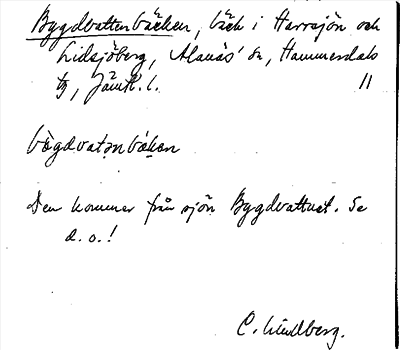 Bygdvattenbäcken, bäck i Harrsjön och
Lidsjöberg, Alanäs' sn, Hammerdals
tg, Jämtl. l. 11
bògdvatǝnbǻkǝn
Den kommer från sjön Bygdvattnet. Se
d. o.!
C. Lindberg.